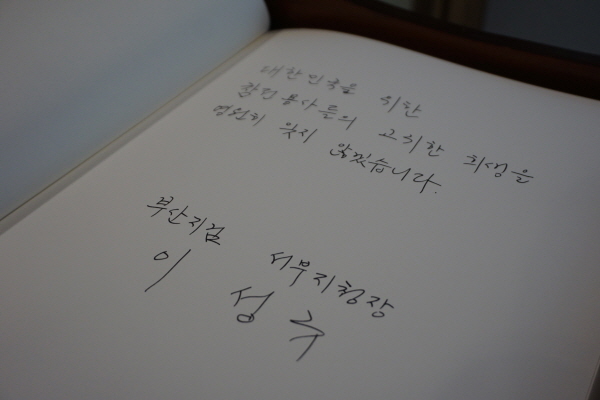 대한민국을 위한
참전용사들의 고귀한 희생을
영원히 잊지 않겠습니다.
부산지검 서부지청장
이 성 규